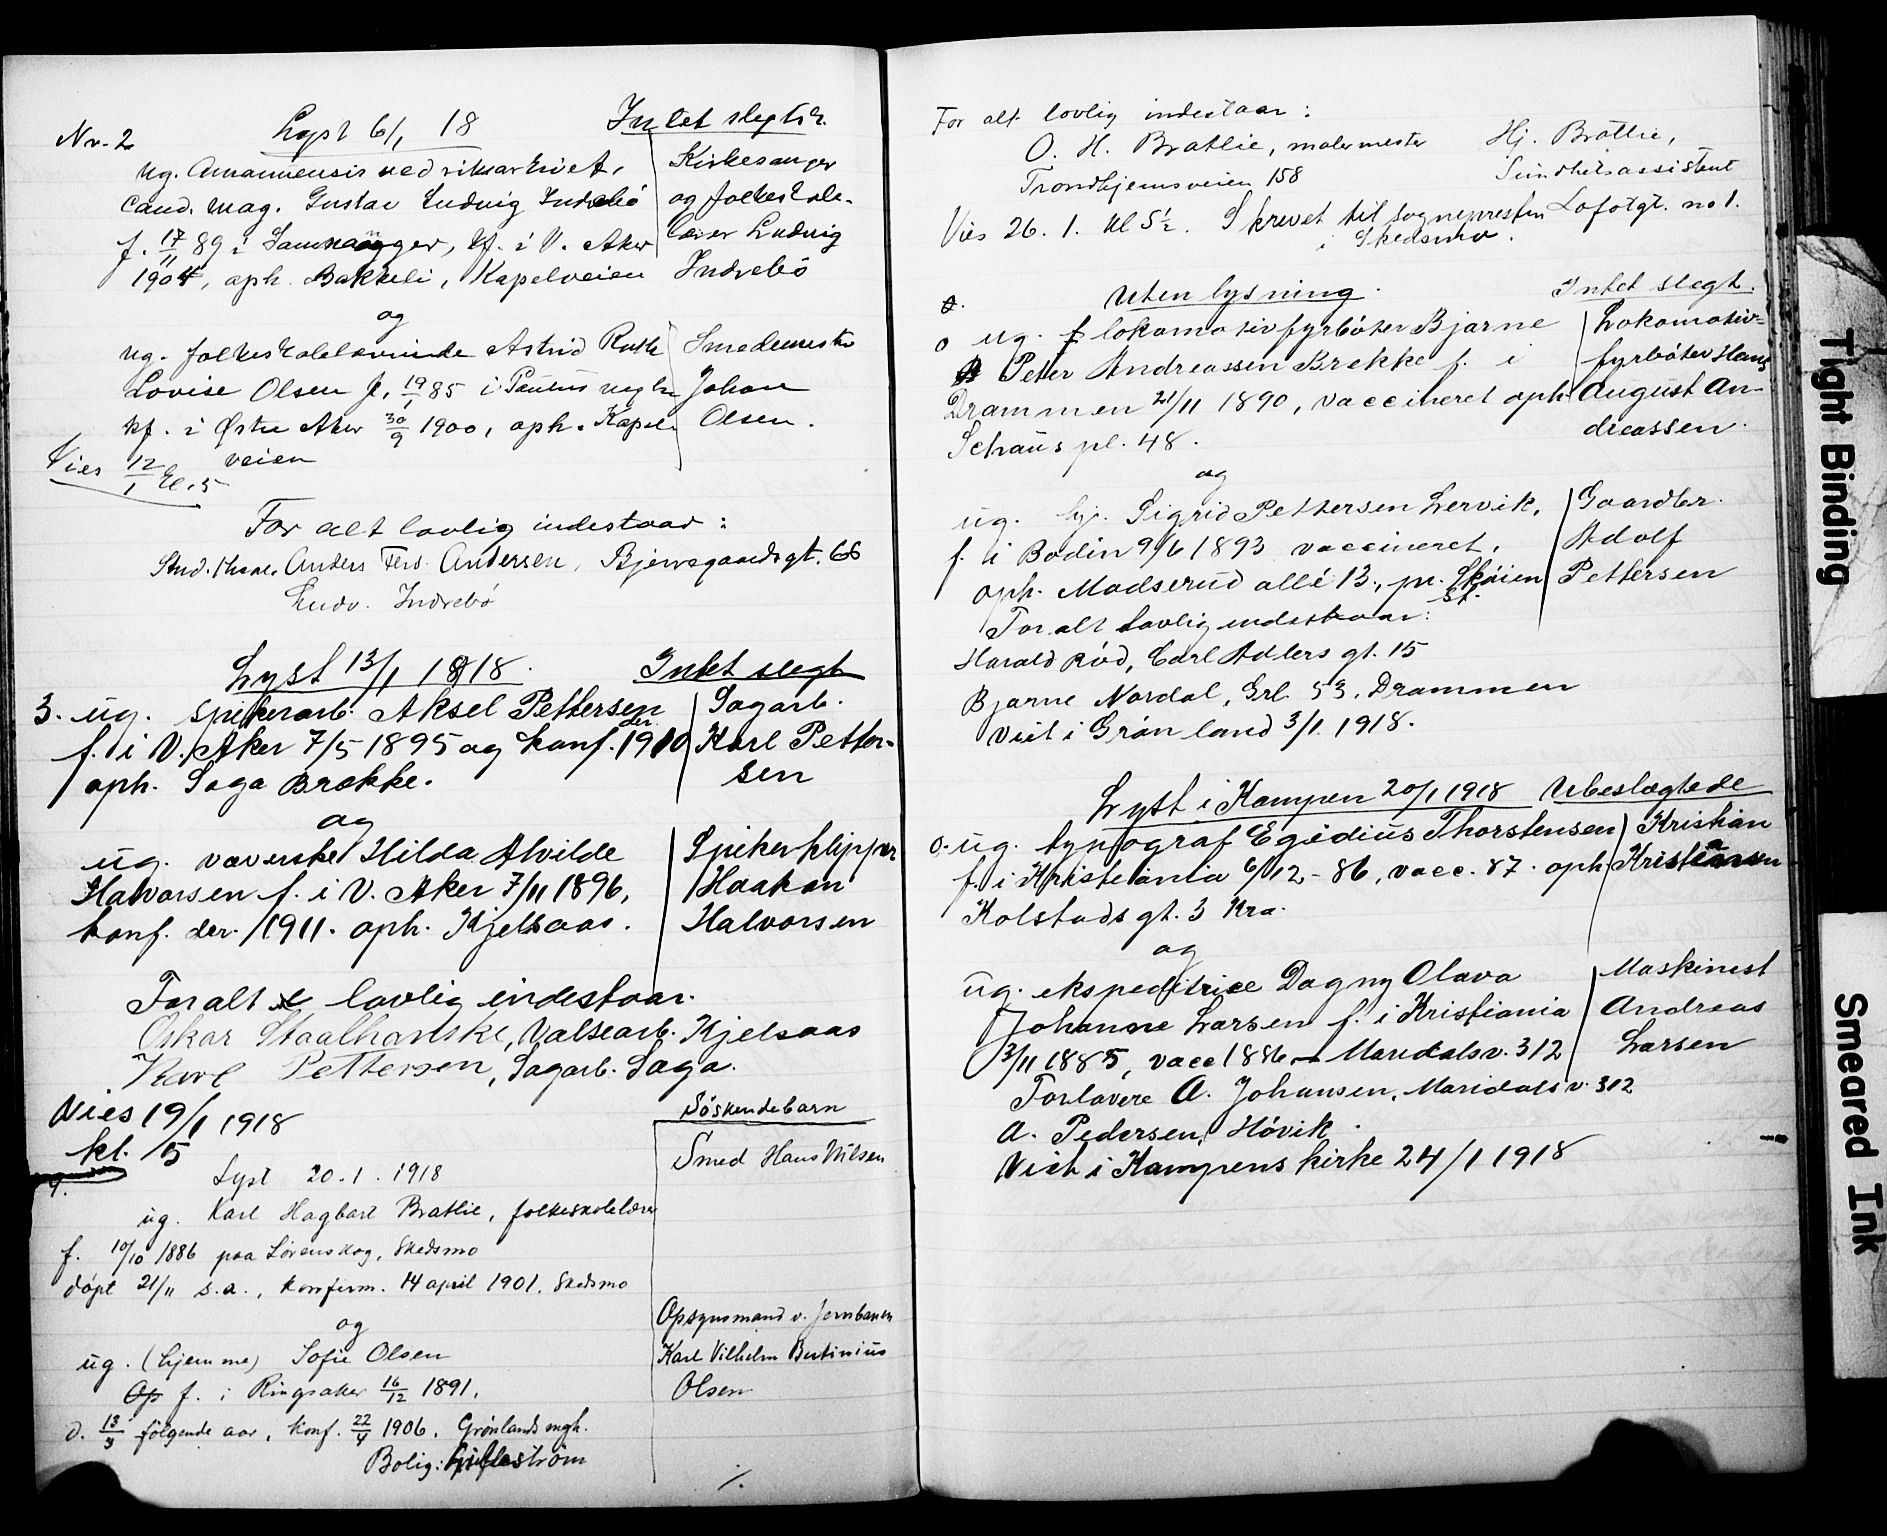 Nr. 2
Lyst 6/1 18
Intet slegtsk.
ug. Amanuensis ved riksarkivet,
Cand. mag. Gustav Ludvig Indrebö
f. 17/11 89 i Samnanger, kf. i V. Aker
1904, oph. Bakkeli, Kapelveien
Kirkesanger
og folkeskole-
lærer Ludvig
Indrebö
og
ug. folkeskolelærerinde Astrid Ruth
Lovise Olsen f. 19/1 85 i Paulus megh.
kf. i Østre Aker 30/9 1900, oph. Kapel-
veien
Smedemester
Johan
Olsen.
Vies 12/1 kl. 5
For alt lovlig indestaar:
Stud. theol. Anders Fers. Andersen, Bjerregaardsgt. 66
Ludv. Indrebö
Lyst 13/1 1918.
Intet slegt
3. ug. spikerarb. Aksel Pettersen
f. i V. Aker 7/5 1895 og konf. der 1910
oph. Saga Brække.
Sagarb.
Karl Petter-
sen
og
ug. væverske Hilda Alvilde
Halvorsen f. i V. Aker 7/11 1896,
konf. der. 1911. oph. Kjelsaas.
Spikerklipper
Haakon
Halvorsen
For alt lovlig indestaar.
Oskar Staalhanske, Valsearb. Kjelsaas
Karl Pettersen, Sagarb. Saga.
Vies 19/1 1918
kl. 5
Söskendebarn
4.
Lyst 20.1.1918
Smed Hans Nilsen
ug. Karl Hagbart Bratlie, folkeskolelærer
f. 10/10 1886 paa Lørenskog, Skedsmo
döpt 21/11 s.a., konfirm. 14 april 1901, Skedsmo
og
Opsynsmand v. Jernbanen
Karl Vilhelm Bertinius
Olsen
ug. (hjemme) Sofie Olsen
Op f. i Ringsaker 16/12 1891,
d. 13/3 fölgende aar, konf. 22/4 1906, Grönlands mgh.
Bolig:
%.
For alt lovlig indestaar:
O. H. Bratlie, malermester
Trondhjemsveien 158
Hj. Bratlie,
Sundhetsassistent
Lofotgt. no 1.
Vies 26. 1. kl 5½. Skrevet til sognepresten
i Skedsmo.
Uten lysning.
Intet slegt.
o ug. lokomotivfyrböter Bjarne
Peter Andreassen Brekke f. i
Drammen 21/11 1890, vaccineret oph.
Schous pl. 48.
Lokomotiv-
fyrböter Hans
August An-
dreassen.
og
ug. hj. Sigrid Pettersen Lervik,
f. i Bodin 9/6 1893 vaccineret,
oph. Madserud allé 13, pr. Sköien
st.
Gaardbr.
Adolf
Pettersen
For alt lovlig indestaar:
Harald Röd, Carl Adlers gt. 15
Bjarne Nordal, Grl. 53, Drammen
Viet i Grönland 3/1 1918.
Lyst i Kampen 20/1 1918
Ubeslegtede
o. ug. typograf Egidius Thorstensen
f. i Kristiania 6/12-86, vacc. 87. oph.
Kolstads gt. 3 Kra.
Kristian
Kristiansen
og
ug. ekspeditrice Dagny Olava
Johanne Larsen f. i Kristiania
3/11 1885, vacc 1886 – Maridalsv. 312
Maskinest
Andreas
Larsen
Forlovere A. Johansen, Maridals v. 312
A. Pedersen, Hövik.
Viet i Kampens kirke 24/1 1918
Tight Binding
Smeared Ink